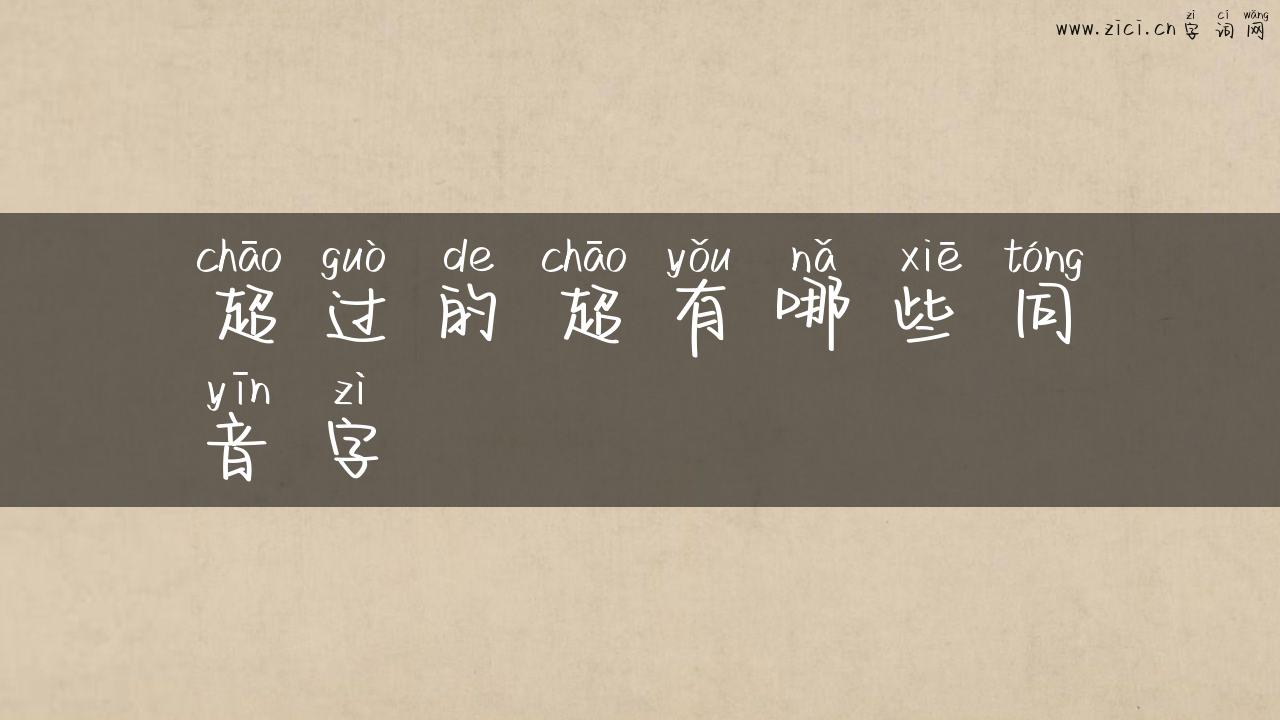 zì cí wǎng
www.zici.cn 字 词 网
chāo guò de chāo yǒu nǎ xiē tóng
超 过 的 超 有 哪 些 同
yīn zì
音 字